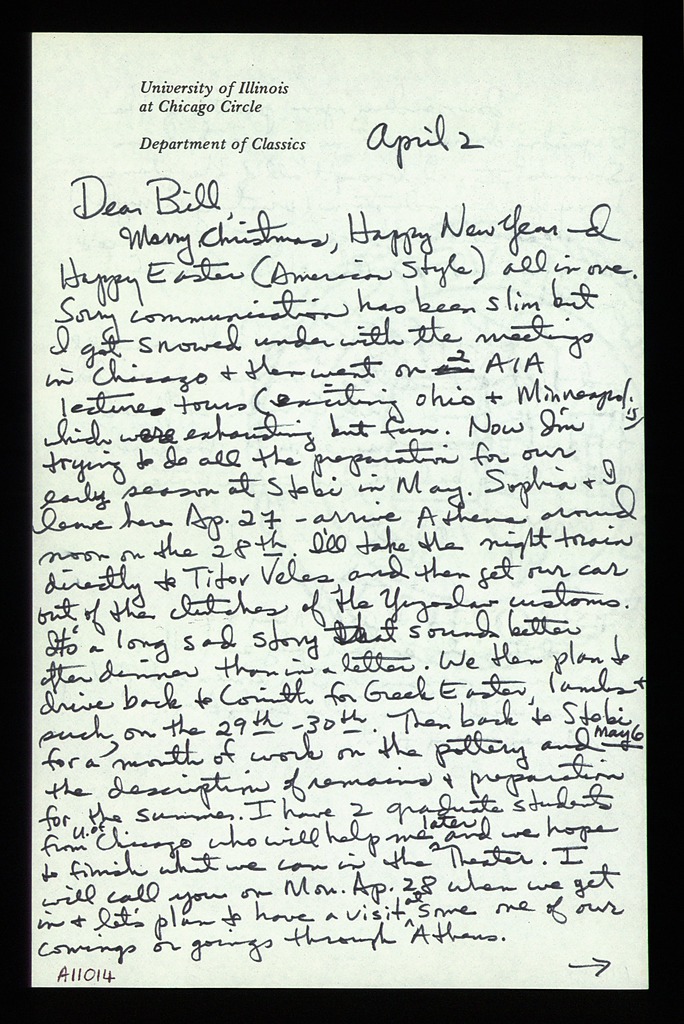 University of Illinois
at Chicago Circle
Department of Classics
April 2
Dear Bill,
Merry Christmas, Happy New Year and
Happy Easter (American style) all in one.
Sorry communication has been slim but
I got snowed under with the meetings
in Chicago + then went on 2 AIA
lectures tours (exciting Ohio + Minneapolis)
which were exhausting but fun. Now I'm
trying to do all the preparation for our
early season at Stobi in May. Sophia + I
leave here Ap. 27 - arrive Athens around
noon on the 28th. I'll take the night train
directly to Titov Veles and then get our car
out of the clutches of the Yugoslav customs.
It's a long sad story that sounds better
after dinner than in a letter. We then plan to
drive back to Corinth for Greek Easter, lambs +
such, on the 29th - 30th. Then back to Stobi
May 6
for a month of work on the pottery and
the description of remains + preparation
for the summer. I have 2 graduate students
from U. of Chicago who will help me later and we hope
to finish what we can in the Theater. I
will call you on Mon. Ap. 28 when we get
in + let's plan to have a visit at some one of our
comings or goings through Athens.
→
A11014